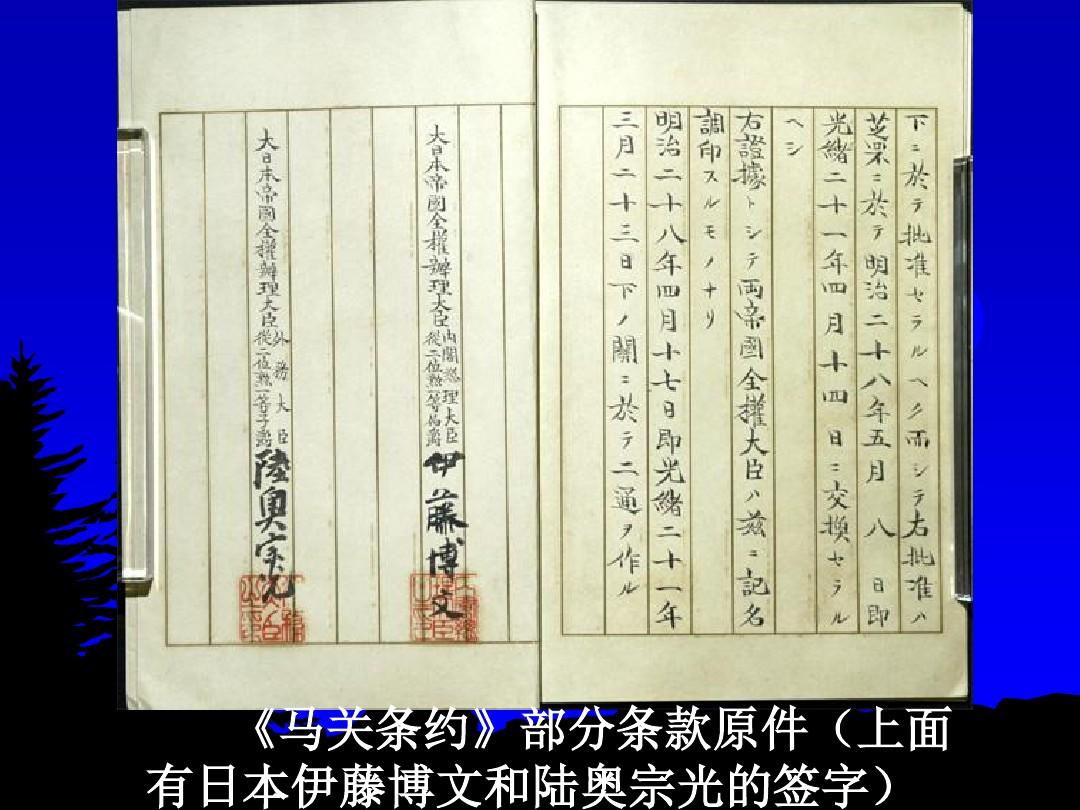 下ニ於テ批准セラルヘク而シテ右批准ハ
芝罘ニ於テ明治二十八年五月八日即
光緒二十一年四月十四日ニ交換セラル
ヘシ
右證據トシテ両帝國全權大臣ハ茲ニ記名
調印スルモノナリ
明治二十八年四月十七日即光緒二十一年
三月二十三日下ノ關ニ於テ二通ヲ作ル
大日本帝國全權辦理大臣內閣總理大臣從二位勲一等伯爵伊藤博文
大日本帝國全權辦理大臣外務大臣從二位勲一等子爵陸奥宗光
《马关条约》部分条款原件（上面
有日本伊藤博文和陆奥宗光的签字）